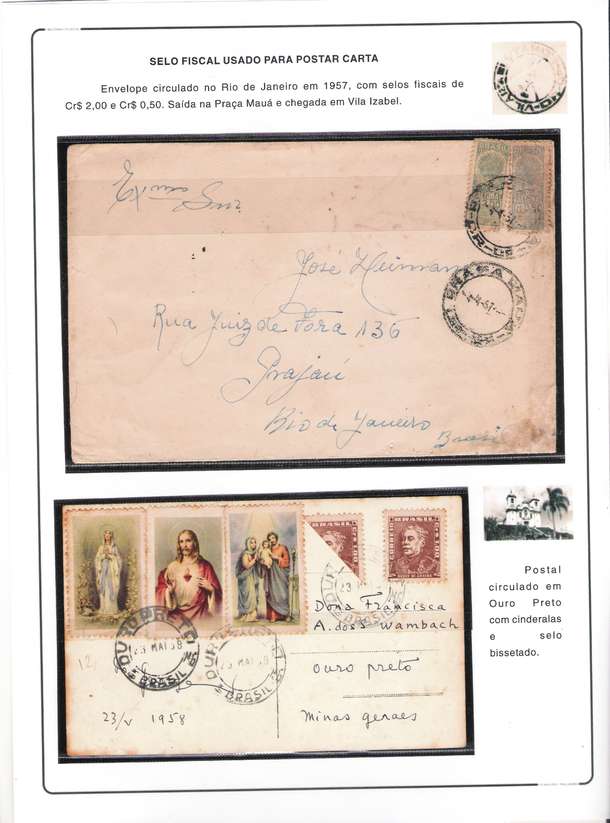 SELO FISCAL USADO PARA POSTAR CARTA
Envelope circulado no Rio de Janeiro em 1957, com selos fiscais de
Cr$ 2,00 e Cr$ 0,50. Saída na Praça Mauá e chegada em Vila Izabel.
José Heiman
Rua Juiz de Fora 136
Grajaú
Rio de Janeiro
Brasil
BRASIL
BRASIL CORREIO
Cr$ 1,00
OURO PRETO
23 MAI 58
BRASIL
OURO PRETO
23 MAI 58
BRASIL
23/V 1958
Dona Francisca
A. dos S Wambach
Ouro preto
Minas geraes
Postal
circulado em
Ouro Preto
com cinderalas
e selo
bissetado.